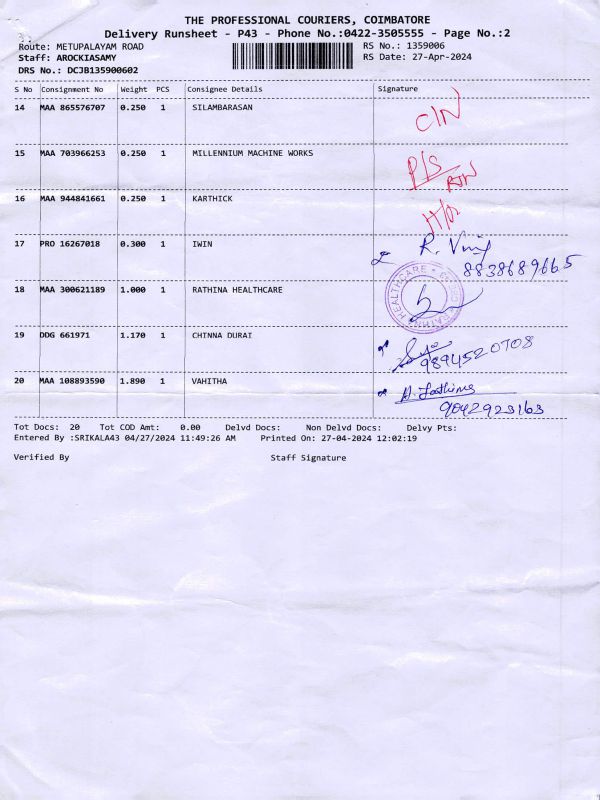 THE PROFESSIONAL COURIERS, COIMBATORE
Delivery Runsheet - P43 - Phone No.:0422-3505555 - Page No.:2
Route: METUPALAYAM ROAD RS No.: 1359006
Staff: AROCKIASAMY RS Date: 27-Apr-2024
DRS No.: DCJB135900602
S No Consignment No Weight PCS Consignee Details Signature
14 MAA 865576707 0.250 1 SILAMBARASAN
C/N
15 MAA 703966253 0.250 1 MILLENNIUM MACHINE WORKS
P/S
16 MAA 944841661 0.250 1 KARTHICK
17 PRO 16267018 0.300 1 IWIN
8838689665
18 MAA 300621189 1.000 1 RATHINA HEALTHCARE
HEALTHCARE
19 DDG 661971 1.170 1 CHINNA DURAI
9894520708
20 MAA 108893590 1.890 1 VAHITHA
9042923163
Tot Docs: 20 Tot COD Amt: 0.00 Delvd Docs: Non Delvd Docs: Delvy Pts:
Entered By :SRIKALA43 04/27/2024 11:49:26 AM Printed On: 27-04-2024 12:02:19
Verified By Staff Signature